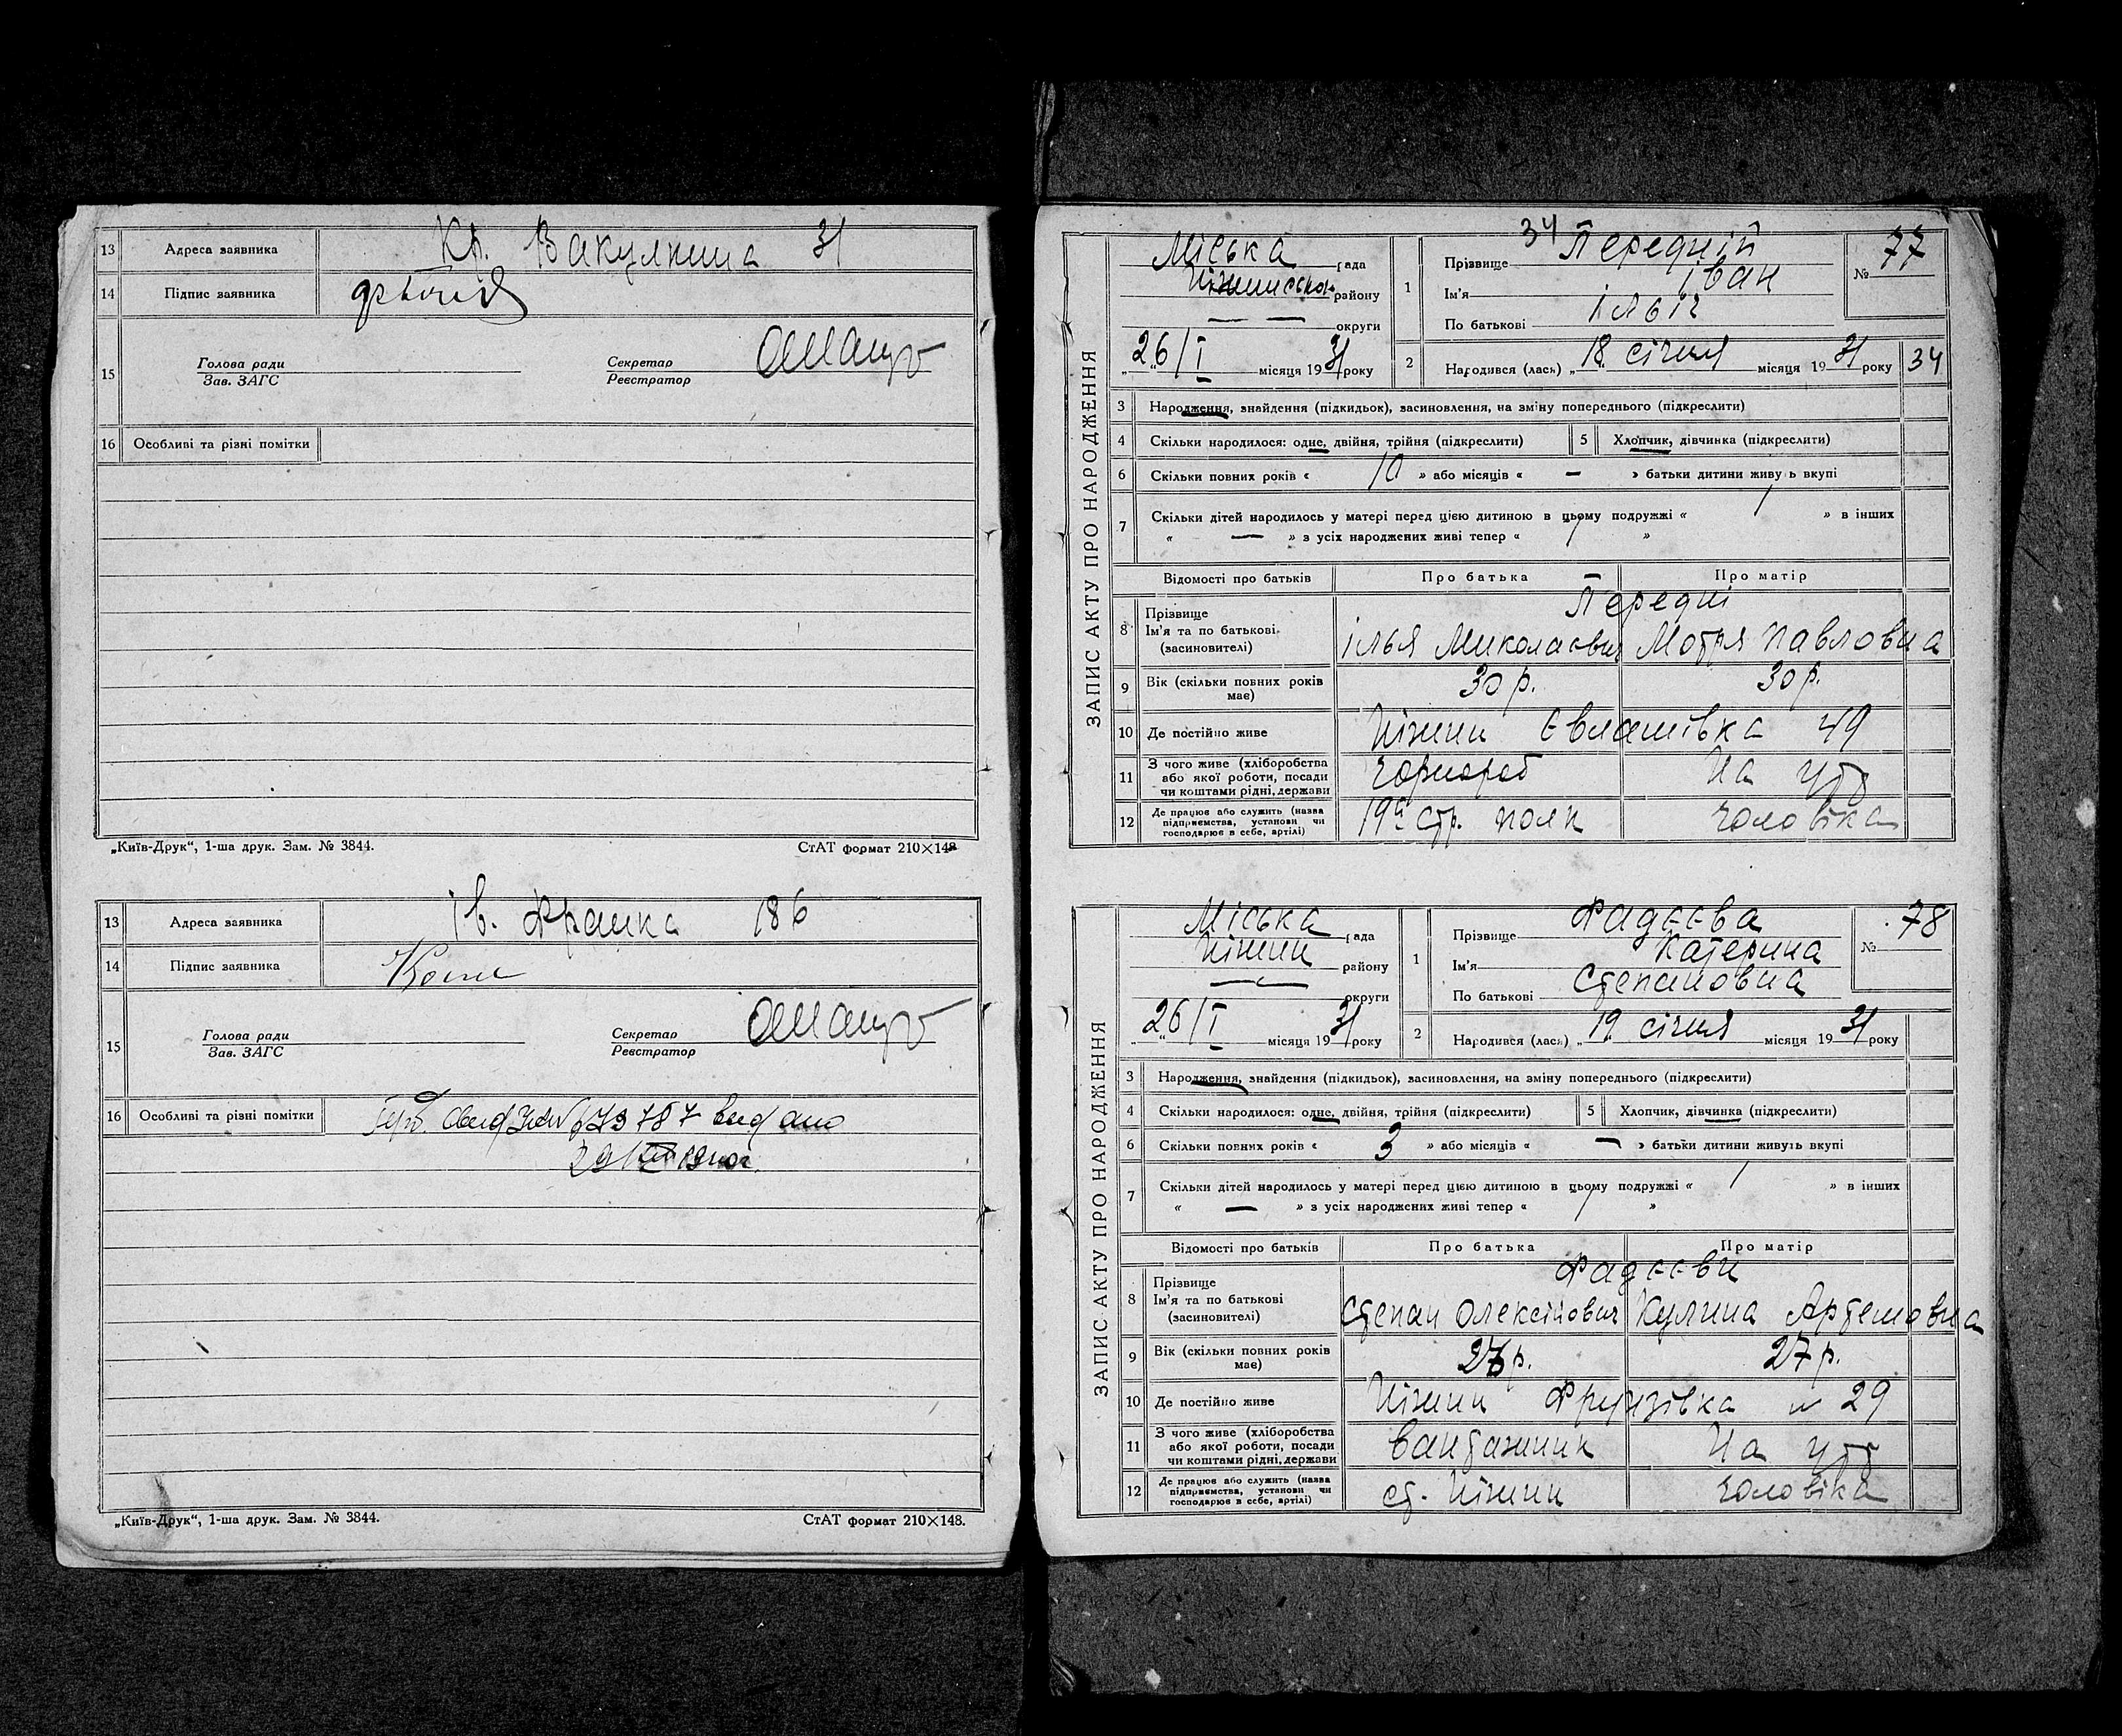 13 Адреса заявника Кр. Вакулкина 31
14 Підпис заявника
15 Голова ради Секретар
Зав. ЗАГС Реєстратор
16 Особливі та різні помітки
„Київ-Друк“, 1-ша друк. Зам. № 3844. СтАТ формат 210×148
13 Адреса заявника Ів. Франка 186
14 Підпис заявника
15 Голова ради Секретар
Зав. ЗАГС Реєстратор
16 Особливі та різні помітки видано
29/
„Київ-Друк“, 1-ша друк. Зам. № 3844. СтАТ формат 210×148.
ЗАПИС АКТУ ПРО НАРОДЖЕННЯ
34
Міська рада
Ніжинська району
— — округи
„26/I місяця 1931 року
1 Прізвище Передній
Ім'я Іван
По батькові Ілліч
№ 77
2 Народився (лась) „18 січня місяця 1931 року 34
3 Народження, знайдення (підкидьок), засиновлення, на зміну попереднього (підкреслити)
4 Скільки народилося: одне, двійня, трійня (підкреслити) 5 Хлопчик, дівчинка (підкреслити)
6 Скільки повних років « 10 » або місяців « — » батьки дитини живуть вкупі
7 Скільки дітей народилось у матері перед цією дитиною в цьому подружжі « 1 » в інших
« — » з усіх народжених живі тепер « 1 »
Відомості про батьків Про батька Про матір
8 Прізвище Передні
Ім'я та по батькові Ілья Миколаєвич Мотря Павловна
(засиновителі)
9 Вік (скільки повних років має) 30 р. 30 р.
10 Де постійно живе Ніжин Євлашівка 49
11 З чого живе (хліборобства або якої роботи, посади чи коштами рідні, держави чорнороб На утр
12 Де працює або служить (назва підприємства, установи чи господарює в себе, артілі) стр. полк чоловіка
ЗАПИС АКТУ ПРО НАРОДЖЕННЯ
Міська рада
Ніжин району
— округи
„26/I місяця 1931 року
1 Прізвище Фадєєва
Ім'я Катерина
По батькові Степановна
№ 78
2 Народився (лась) „19 січня місяця 1931 року
3 Народження, знайдення (підкидьок), засиновлення, на зміну попереднього (підкреслити)
4 Скільки народилося: одне, двійня, трійня (підкреслити) 5 Хлопчик, дівчинка (підкреслити)
6 Скільки повних років « 3 » або місяців « — » батьки дитини живуть вкупі
7 Скільки дітей народилось у матері перед цією дитиною в цьому подружжі « 1 » в інших
« — » з усіх народжених живі тепер « 1 »
Відомості про батьків Про батька Про матір
8 Прізвище Фадєєви
Ім'я та по батькові Степан Олексійович Кулина Артемовна
(засиновителі)
9 Вік (скільки повних років має) р. 27 р.
10 Де постійно живе Ніжин Фрунзівка № 29
11 З чого живе (хліборобства або якої роботи, посади чи коштами рідні, держави вантажник На утр
12 Де працює або служить (назва підприємства, установи чи господарює в себе, артілі) ст. Ніжин чоловіка